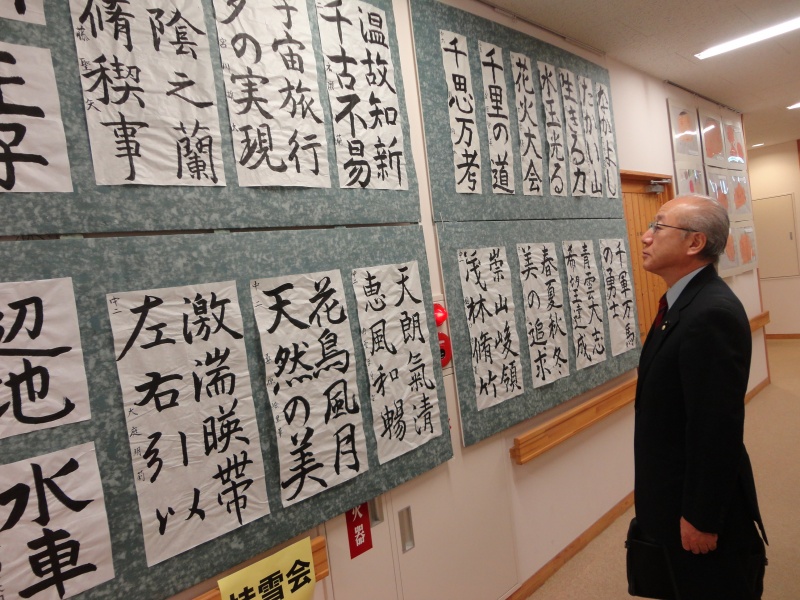 陰之蘭
脩禊事
宇宙旅行
の実現
温故知新
千古不易
千思万考
千里の道
花火大会
水玉光る
生きる力
たかい山
なかよし
辺池
水車
激湍暎帯
左右引以
中二
花鳥風月
天然の美
中二
天朗氣清
恵風和暢
崇山峻領
林脩竹
春夏秋冬
美の追求
青雲大志
希望達成
千軍万馬
の勇士
火器
雪会